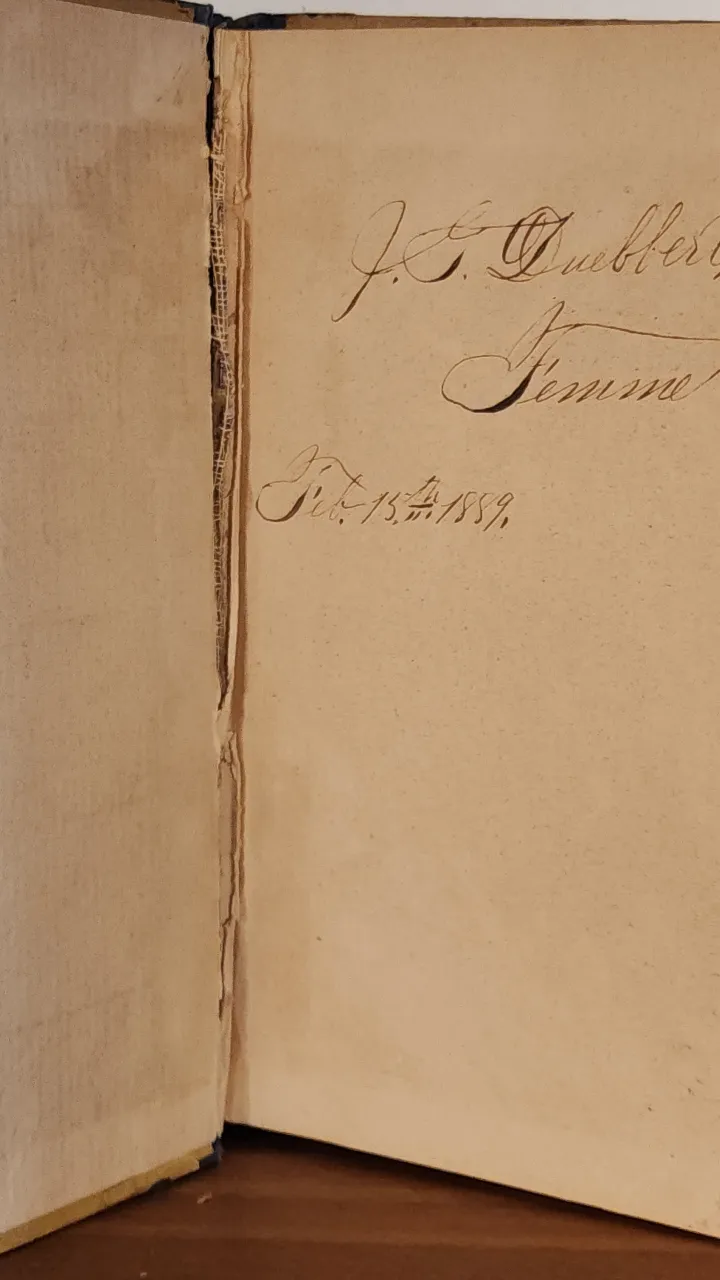 J. G. Duebbert
Femme
Feb. 15th 1889.